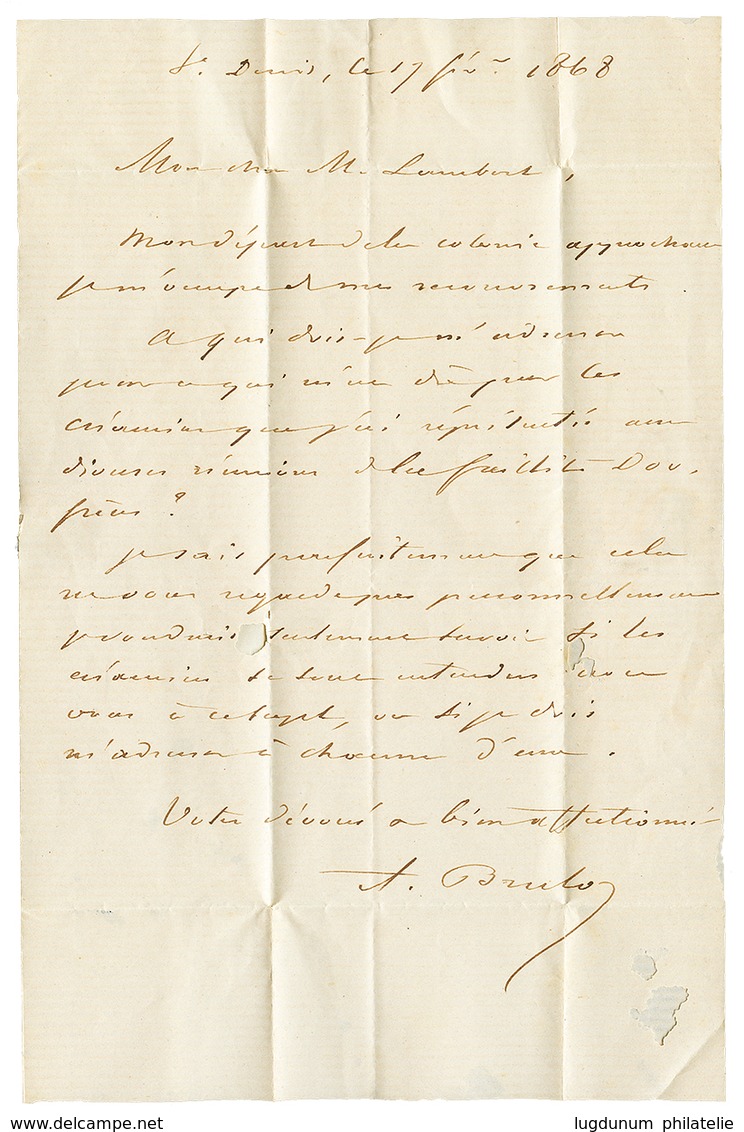 St. Denis, le 17 fév. 1868
Mon cher M. Lambert,
Mon départ de la colonie approchant
je m'occupe de mes recouvrements.
A qui dois-je m'adresser
pour ce qui m'est dû par les
créanciers que j'ai représentés aux
diverses réunions de la faillite
frères ?
Je sais parfaitement que cela
ne vous regarde pas personnellement
je voudrais seulement savoir si les
créanciers se sont entendus avec
vous à ce sujet, ou si je dois
m'adresser à chacun d'eux.
Votre dévoué et bien affectionné
delcampe.net
lugdunum philatelie